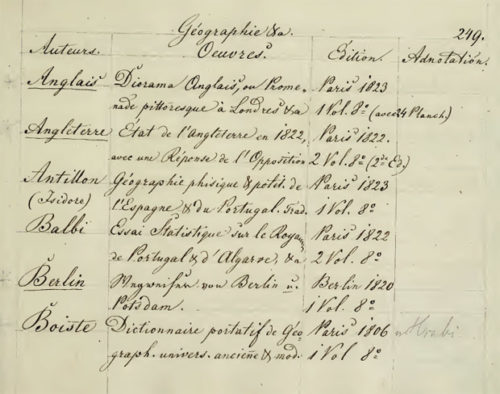 Géographie &a. 249.
Auteurs. Oeuvres. Edition. Adnotation.
Anglais Diorama Anglais, ou Prome- Paris 1823
nade pittoresque à Londres &a 1 Vol. 8º (avec 24 Planch)
Angleterre État de l'Angleterre en 1822, Paris 1822.
avec une Réponse de l'Opposition 2 Vol. 8º (2de Ed.)
Antillon Géographie phisique & polit. de Paris 1823
(Isidore) l'Espagne & du Portugal. Trad. 1 Vol. 8º
Balbi Essai Statistique sur le Royau. Paris 1822
de Portugal & d'Algarve, &a 2 Vol. 8º
Berlin von Berlin u. Berlin 1820
Potsdam. 1 Vol. 8º
Boiste Dictionnaire portatif de Géo- Paris 1806
graph. univers. anciene & mod. 1 Vol 8º